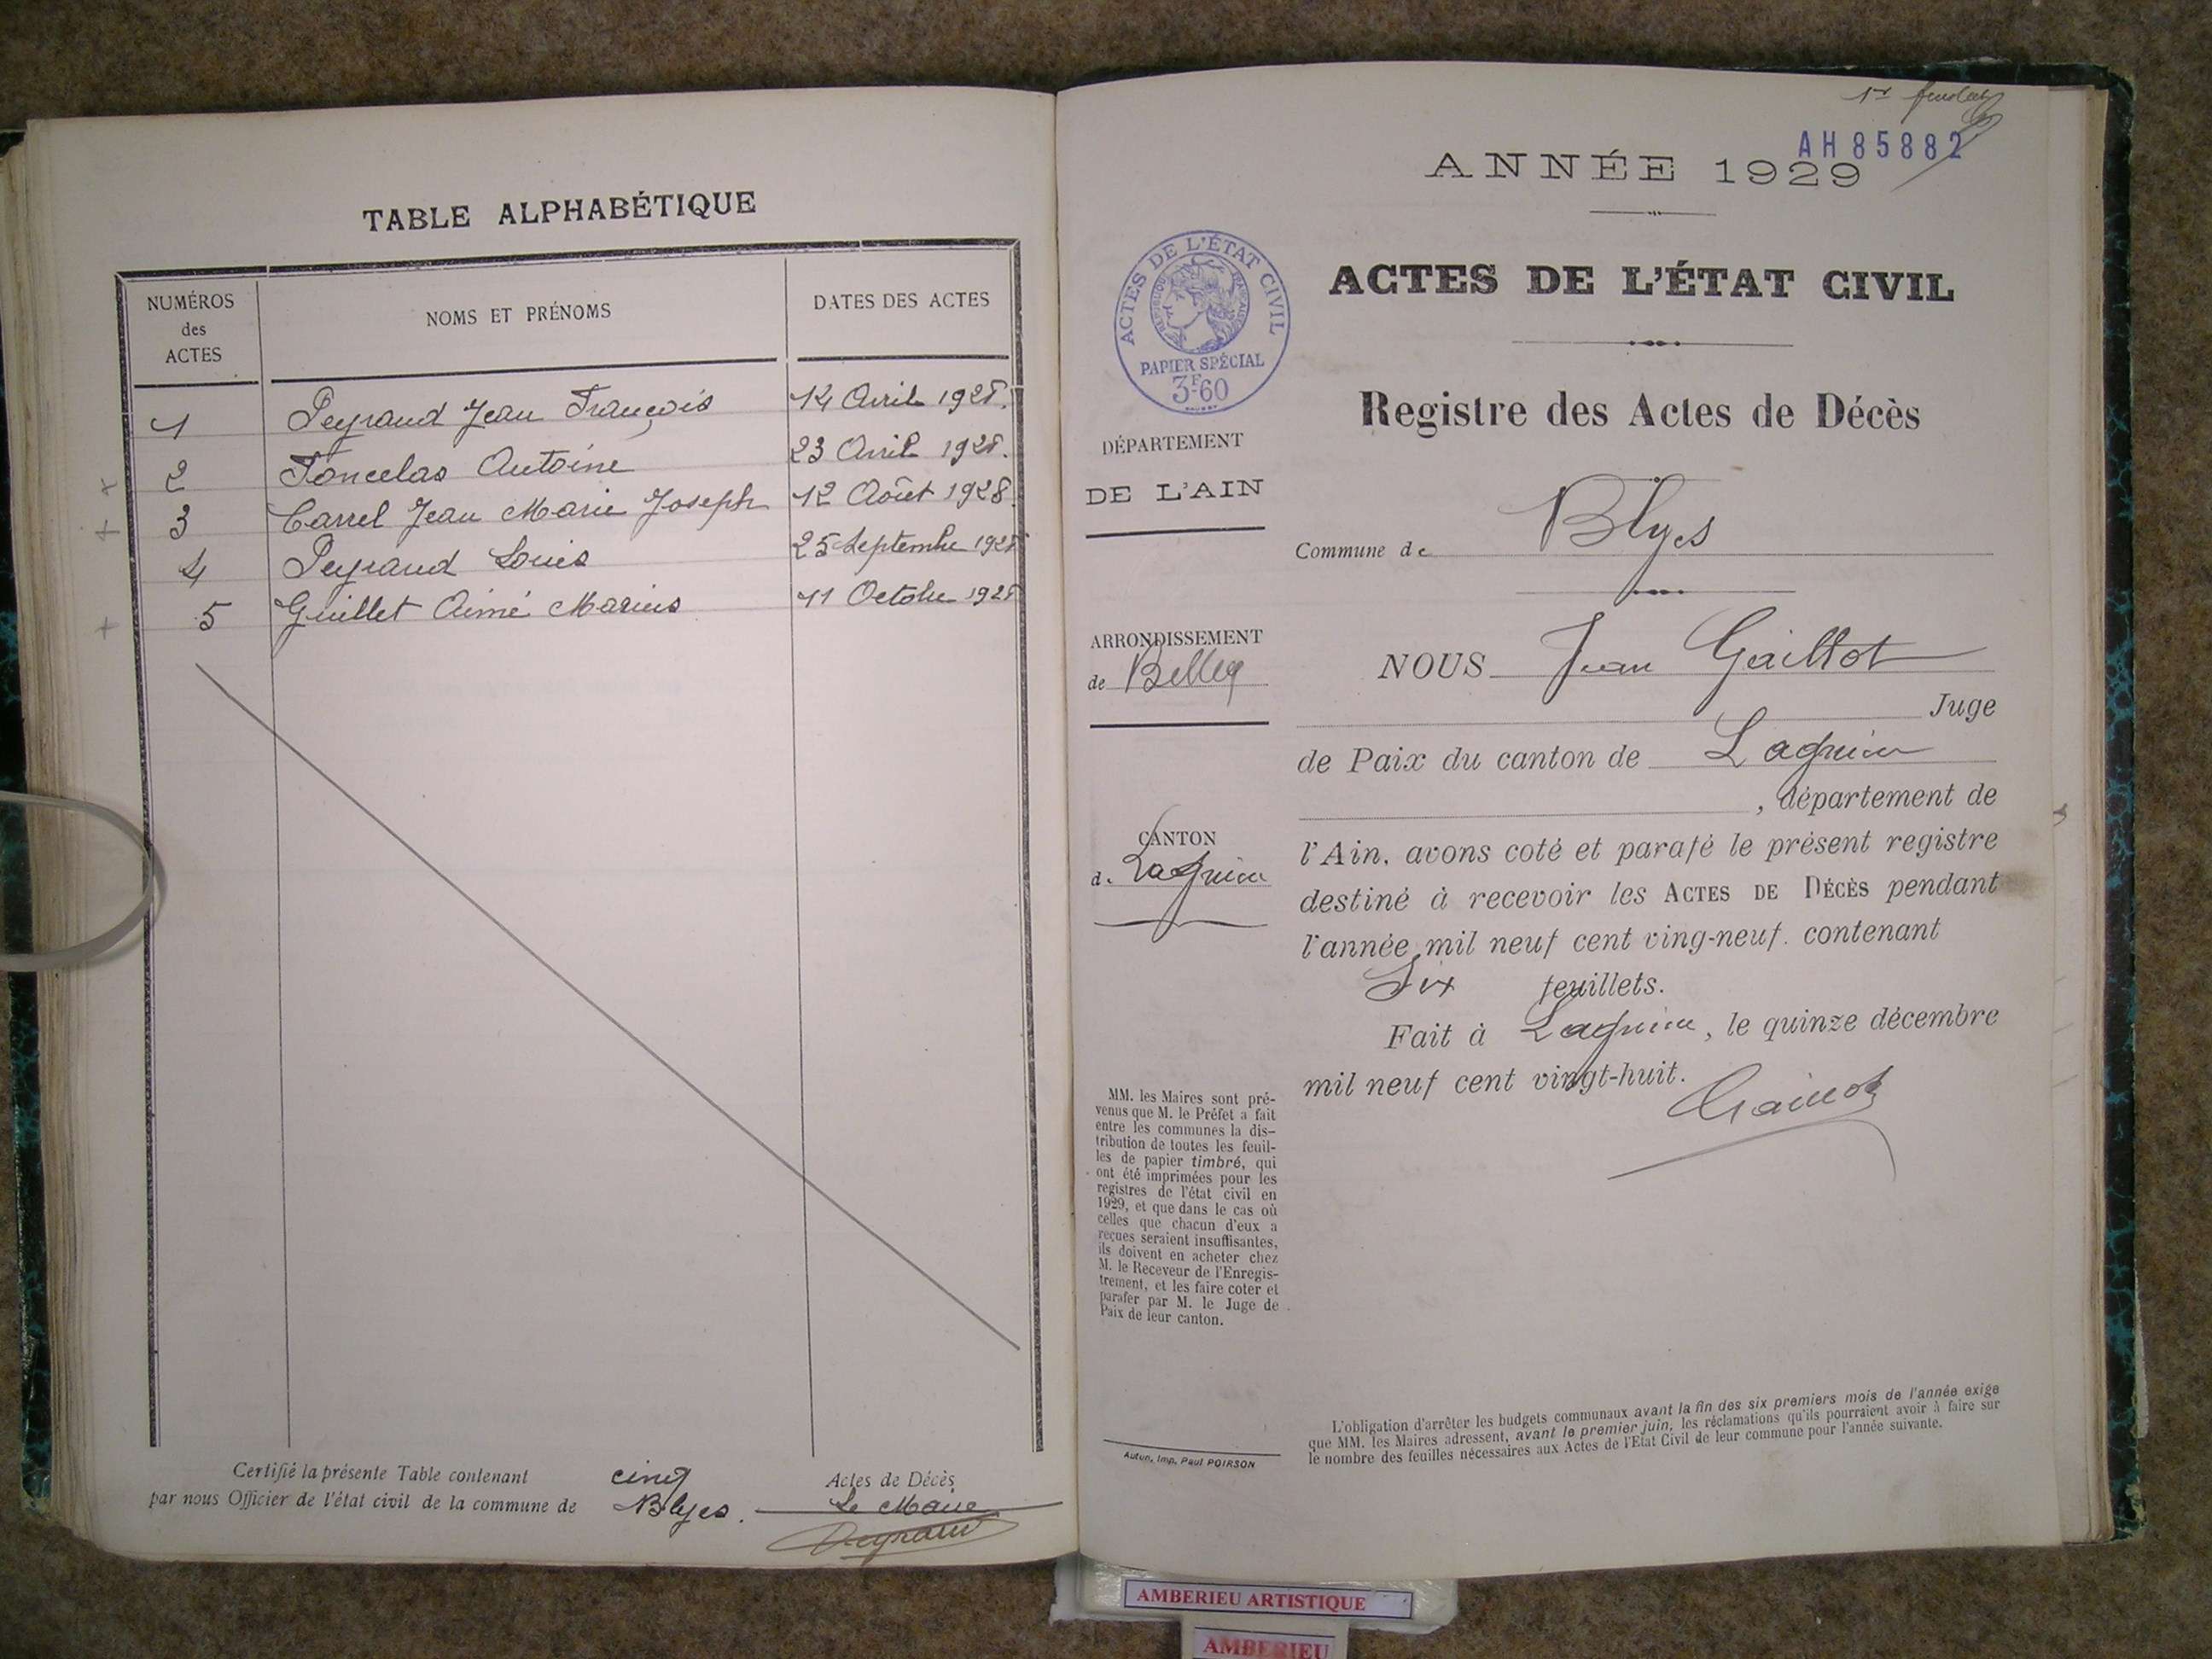 TABLE ALPHABÉTIQUE
NUMÉROS
des
ACTES
NOMS ET PRÉNOMS
DATES DES ACTES
1 Peyraud Jean François 14 Avril 1928.
2 Antoine 23 Avril 1928.
3 Carrel Jean Marie Joseph 12 Août 1928.
4 Peyraud Louis 25 Septembre 1928
5 Guillet Aimé Marius 11 Octobre 1928
Certifié la présente Table contenant cinq Actes de Décès
par nous Officier de l'état civil de la commune de Blyes. Le Maire
Peyraud
1er
AH85882
ANNÉE 1929
ACTES DE L'ÉTAT CIVIL
RÉPUBLIQUE FRANÇAISE
PAPIER SPÉCIAL
3F60
DÉPARTEMENT
DE L'AIN
ARRONDISSEMENT
de Belley
CANTON
de Lagnieu
MM. les Maires sont pré-
venus que M. le Préfet a fait
entre les communes la dis-
tribution de toutes les feuil-
les de papier timbré, qui
ont été imprimées pour les
registres de l'état civil en
1929, et que dans le cas où
celles que chacun d'eux a
reçues seraient insuffisantes,
ils doivent en acheter chez
M. le Receveur de l'Enregis-
trement, et les faire coter et
parafer par M. le Juge de
Paix de leur canton.
Autun, Imp. Paul POIRSON
ACTES DE L'ÉTAT CIVIL
Registre des Actes de Décès
Commune de Blyes
NOUS Jean Gaillot
Juge
de Paix du canton de Lagnieu
, département de
l'Ain, avons coté et parafé le présent registre
destiné à recevoir les ACTES DE DÉCÈS pendant
l'année mil neuf cent ving-neuf. contenant
Six feuillets.
Fait à Lagnieu, le quinze décembre
mil neuf cent vingt-huit.
L'obligation d'arrêter les budgets communaux avant la fin des six premiers mois de l'année exige
que MM. les Maires adressent, avant le premier juin, les réclamations qu'ils pourraient avoir à faire sur
le nombre des feuilles nécessaires aux Actes de l'Etat Civil de leur commune pour l'année suivante.
AMBERIEU ARTISTIQUE
AMBERIEU